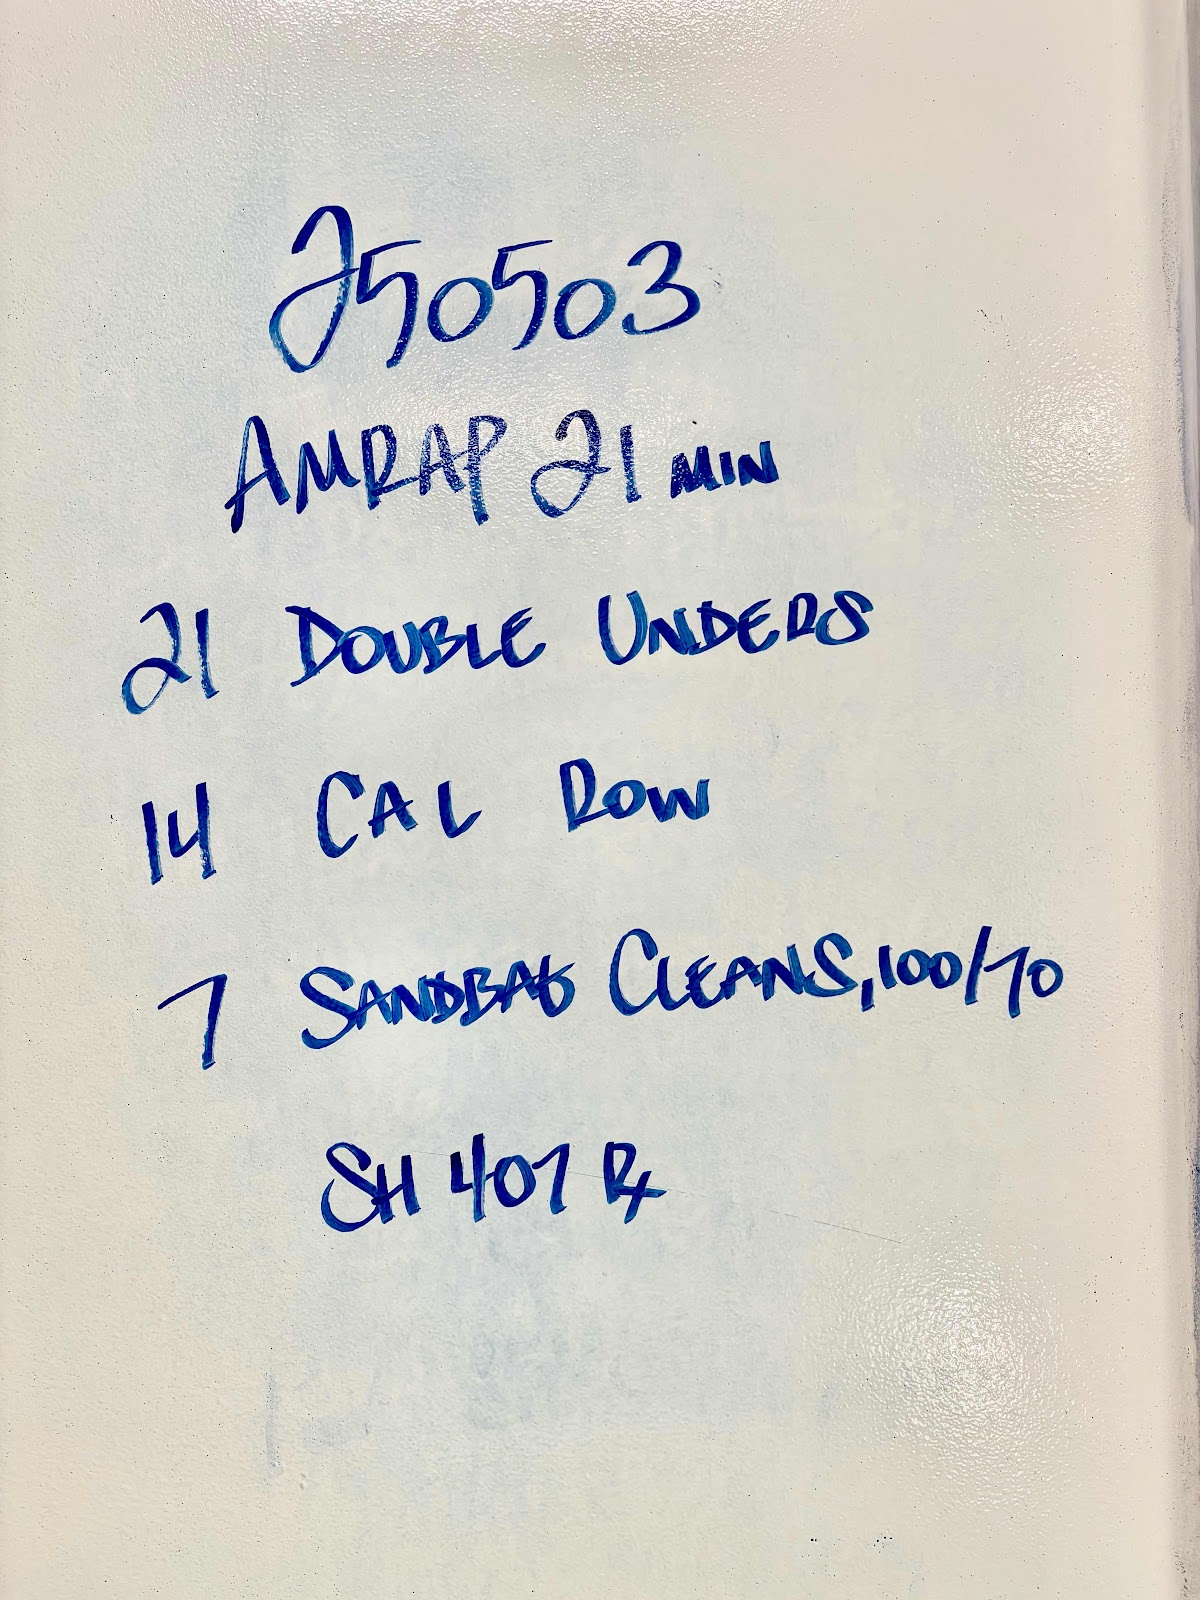 250503
AMRAP 21 MIN
21 DOUBLE UNDERS
14 CAL ROW
7 SANDBAG CLEANS, 100/70
SH 407 Rx